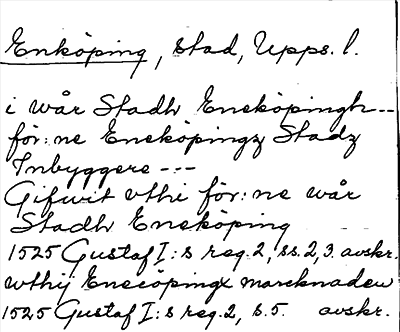 Enköping, stad, Upps. l.
i wår Stadh Eneköpingh---
för:ne Eneköpingz Stadz
Inbyggere ---
Gifwit vthi för:ne wår
Stadh Eneköping
1525 Gustaf I:s reg. 2, ss. 2, 3. avskr.
wthij Eneöpingx marcknaden
1525 Gustaf I:s reg. 2, s. 5. avskr.